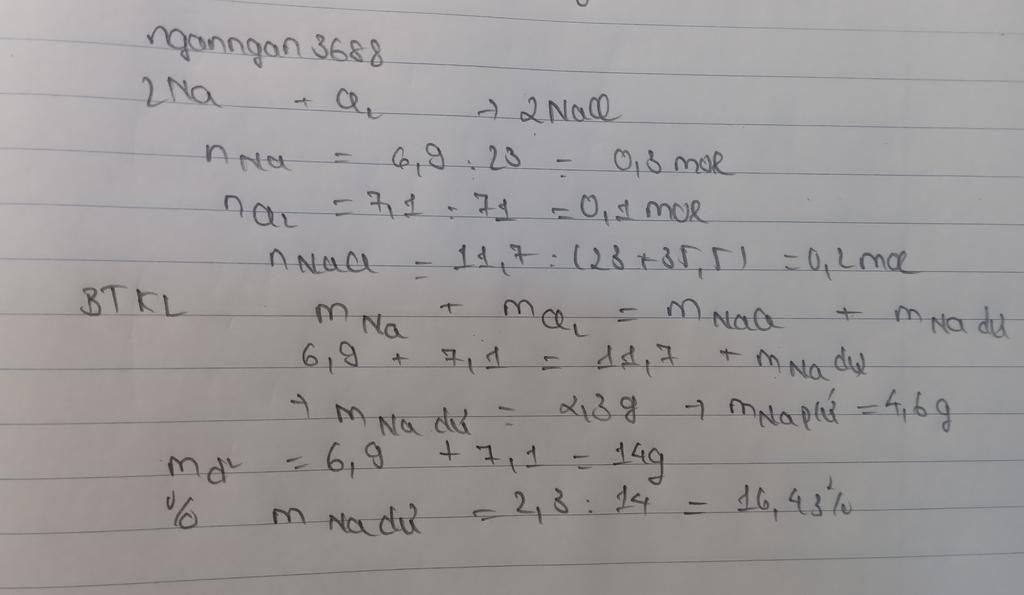 nganngan3688
2Na + Cl₂ → 2NaCl
nNa = 6,9 : 23 = 0,3 mol
nCl₂ = 7,1 : 71 = 0,1 mol
nNaCl = 11,7 : (23 + 35,5) = 0,2 mol
BTKL mNa + mCl₂ = mNaCl + mNa dư
6,9 + 7,1 = 11,7 + mNa dư
→ mNa dư = 2,3g → mNa pứ = 4,6g
md² = 6,9 + 7,1 = 14g
% mNa dư = 2,3 : 14 = 16,43%